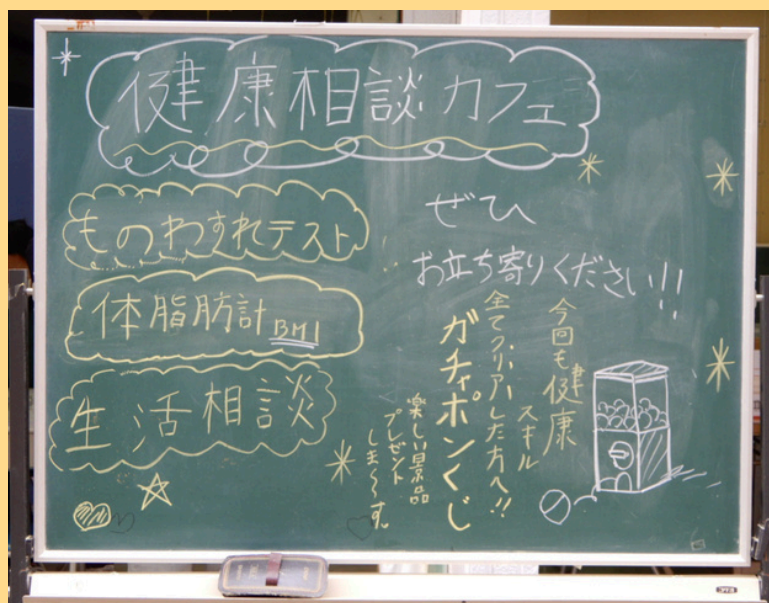 健康相談カフェ
ものわすれテスト
体脂肪計 BMI
生活相談
ぜひ
お立ち寄りください!!
今回も健康
スキル
全てクリアーした方へ!!
ガチャポンくじ
楽しい景品
プレゼント
しま〜す。